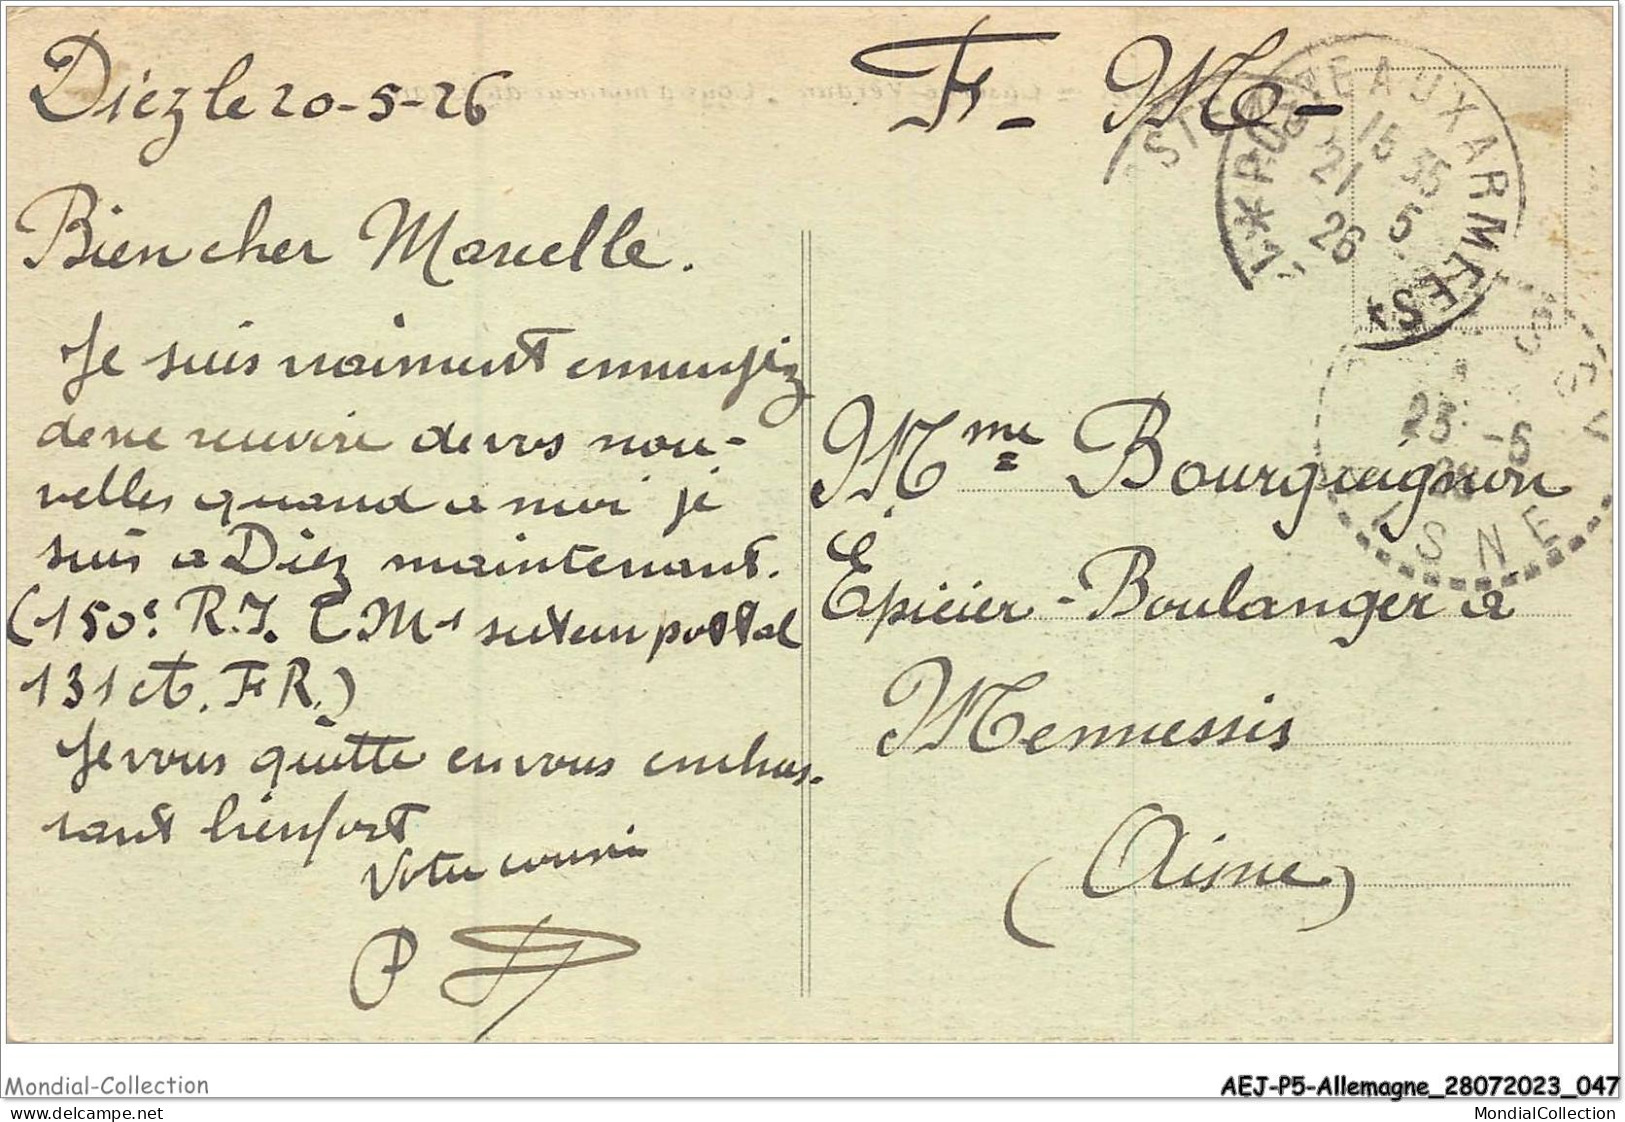 Diez le 20-5-26
F. M.
POSTE AUX ARMEES
15 35
21 5
26
Bien cher Marcelle.
Je suis vraiment
de ne de vos nou-
velles quand a moi je
suis a Diez maintenant.
(150e. R.I. C.M1 postal
131 FR.)
Je vous quitte en vous embras-
sant bien fort
Votre cousin
P
Mme Bourguignon
Epicier-Boulanger a
Mennessis
(Aisne)
23 -5
AISNE
Mondial-Collection
AEJ-P5-Allemagne_28072023_047
delcampe.net
MondialCollection